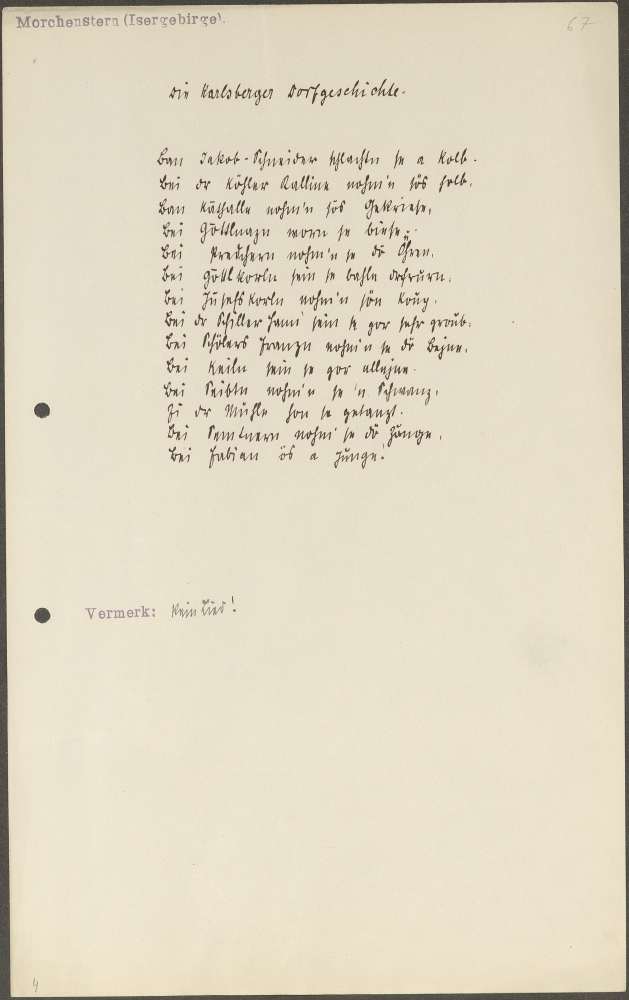 Morchenstern (Isergebirge).
67
Die Karlsberger Dorfgeschichte.
Ban Jakob-Schneider schlachtn se a Kolb.
Bei dr Köhler Kalline nohm'n sös holb.
Ban Käthalle nohm'n sös Gekriese,
Bei Gottlnazn worn se biese.
Bei Preuchern nohm'n se dö Ohren.
Bei Gottlkorln sein se bahle drfrurn.
Bei Jusefskorln nohm'n sön Koup.
Bei dr Schiller Hani sein se gor sehr groub.
Bei Schölers Franzn nohm'n se dö Bejne.
Bei Keiln sein se gor allejne.
Bei Seibtn nohm'n se 'n Schwanz,
Zu dr Mühle hon se getanzt.
Bei Semtnern nohm' se dö Zunge,
Bei Fabian ös a Junge!
Vermerk: Kein Lied!
4